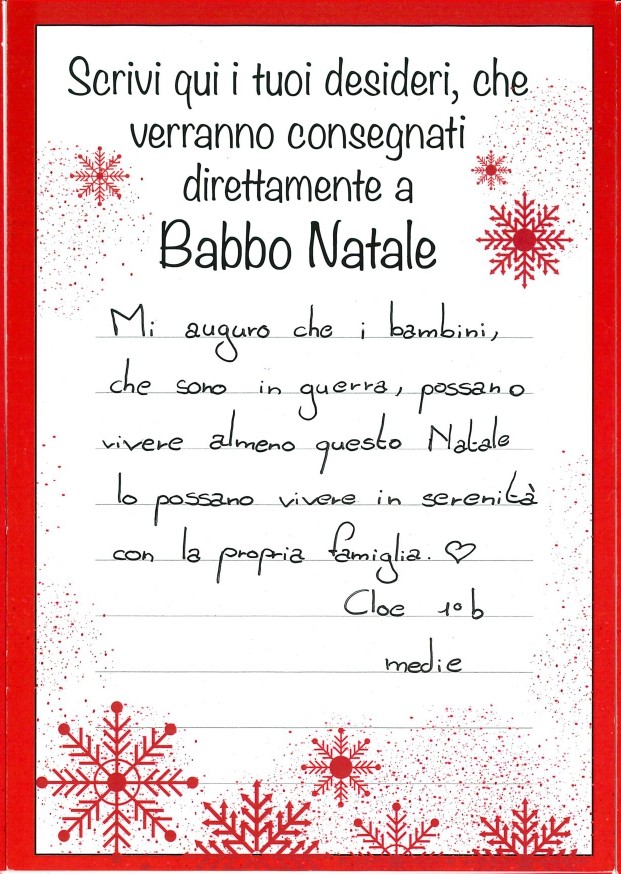 Scrivi qui i tuoi desideri, che
verranno consegnati
direttamente a
Babbo Natale
Mi auguro che i bambini,
che sono in guerra, possano
vivere almeno questo Natale
lo possano vivere in serenità
con la propria famiglia. ♡
Cloe 1° b
medie